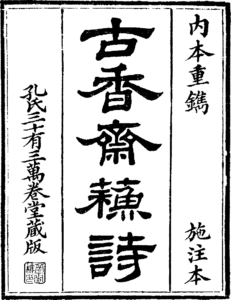 内本重鐫
施注本
古香齋蘓詩
孔氏三十有三萬卷堂藏版